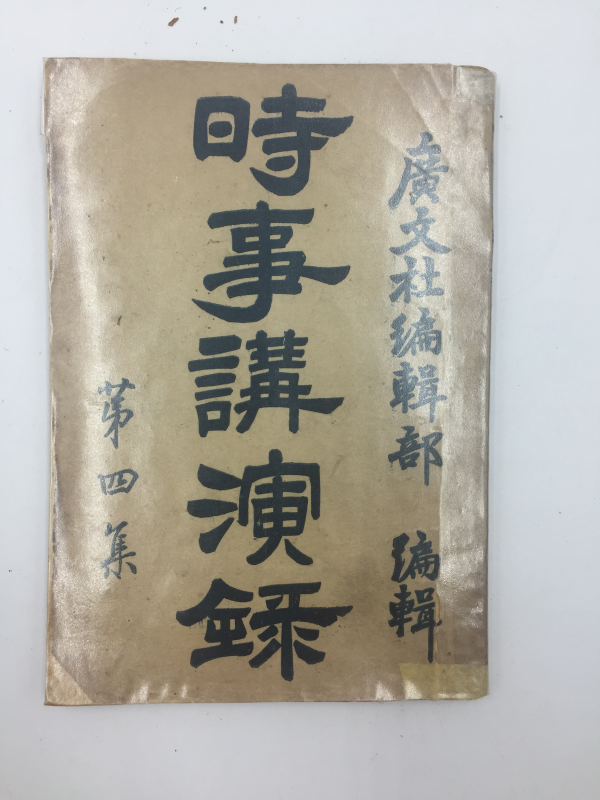 廣文社編輯部 編輯
時事講演錄
第四集